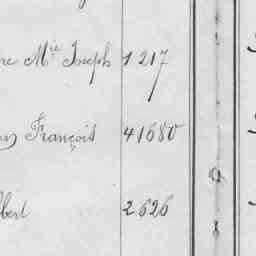 re Mie Joseph 1217
François 41680
bert 2626